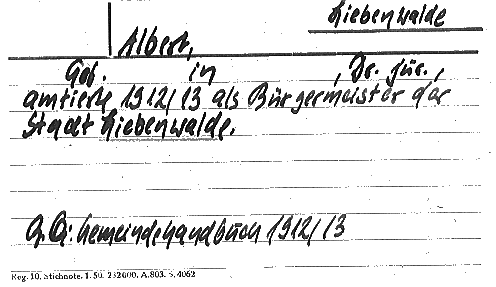 Liebenwalde
Albert,
Geb. in , Dr. jur.,
amtierte 1912/13 als Bürgermeister der
Stadt Liebenwalde.
G.Q: Gemeindehandbuch 1912/13
Reg. 10. Stichnote. 1. 50. 232000. A.803. 5.4062